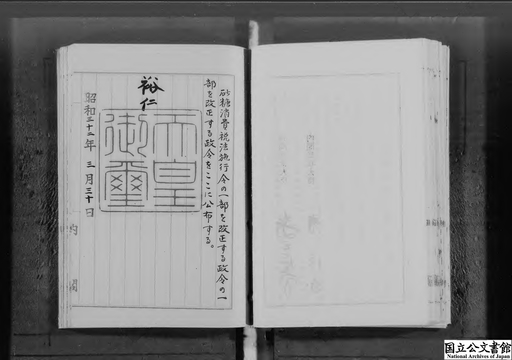 砂糖消費税法施行令の一部を改正する政令の一
部を改正する政令をここに公布する。
裕仁
天皇
御璽
昭和三十二年三月三十日
内閣
国立公文書館
National Archives of Japan